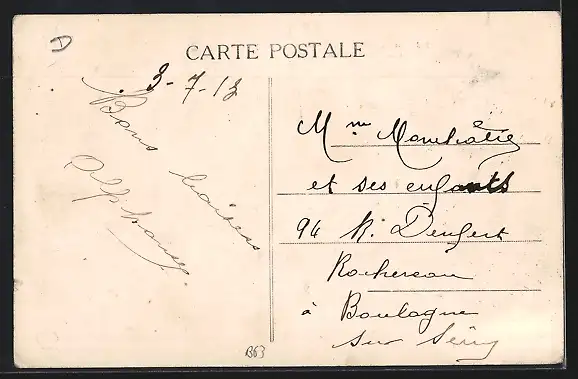 D
CARTE POSTALE
3-7-13
Bons baisers
Alphonse
Mme
et ses enfants
94 R. Denfert
Rochereau
à Boulogne
sur Seine
B63